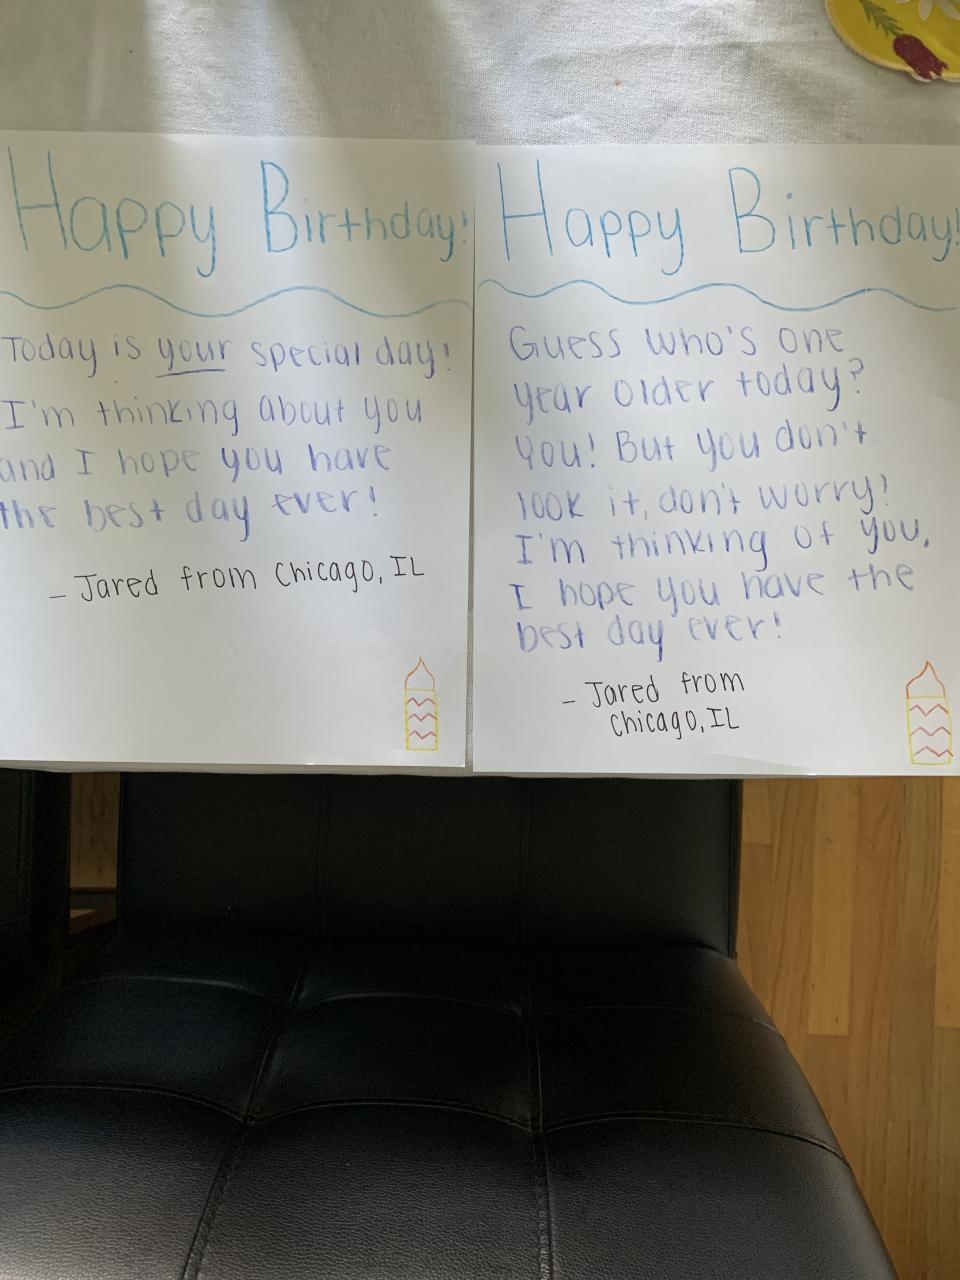 Happy Birthday!
Today is your special day!
I'm thinking about you
and I hope you have
the best day ever!
– Jared from Chicago, IL
Happy Birthday!
Guess who's one
year older today?
You! But you don't
look it, don't worry!
I'm thinking of you,
I hope you have the
best day ever!
– Jared from
Chicago, IL